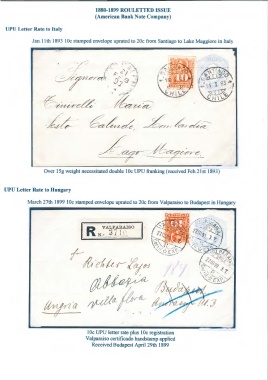 1880-1899 ROULETTED ISSUE
(American Bank Note Company)
UPU Letter Rate to Italy
Jan 11th 1893 10c stamped envelope uprated to 20c from Santiago to Lake Maggiore in Italy
Signora
Maria
Sesto Calende, Lombardia
Lago Magiore
10
CHILE
Over 15g weight necessitated double 10c UPU franking (received Feb 21st 1893)
UPU Letter Rate to Hungary
March 27th 1899 10c stamped envelope uprated to 20c Valparaiso to Budapest in Hungary
VALPARAISO
R
Richter Lajos
Abbazia
Budapest
Ungria
villa flora
10c UPU letter rate plus 10c registration
Valparaiso certificado handstamp applied
Received Budapest April 29th 1899